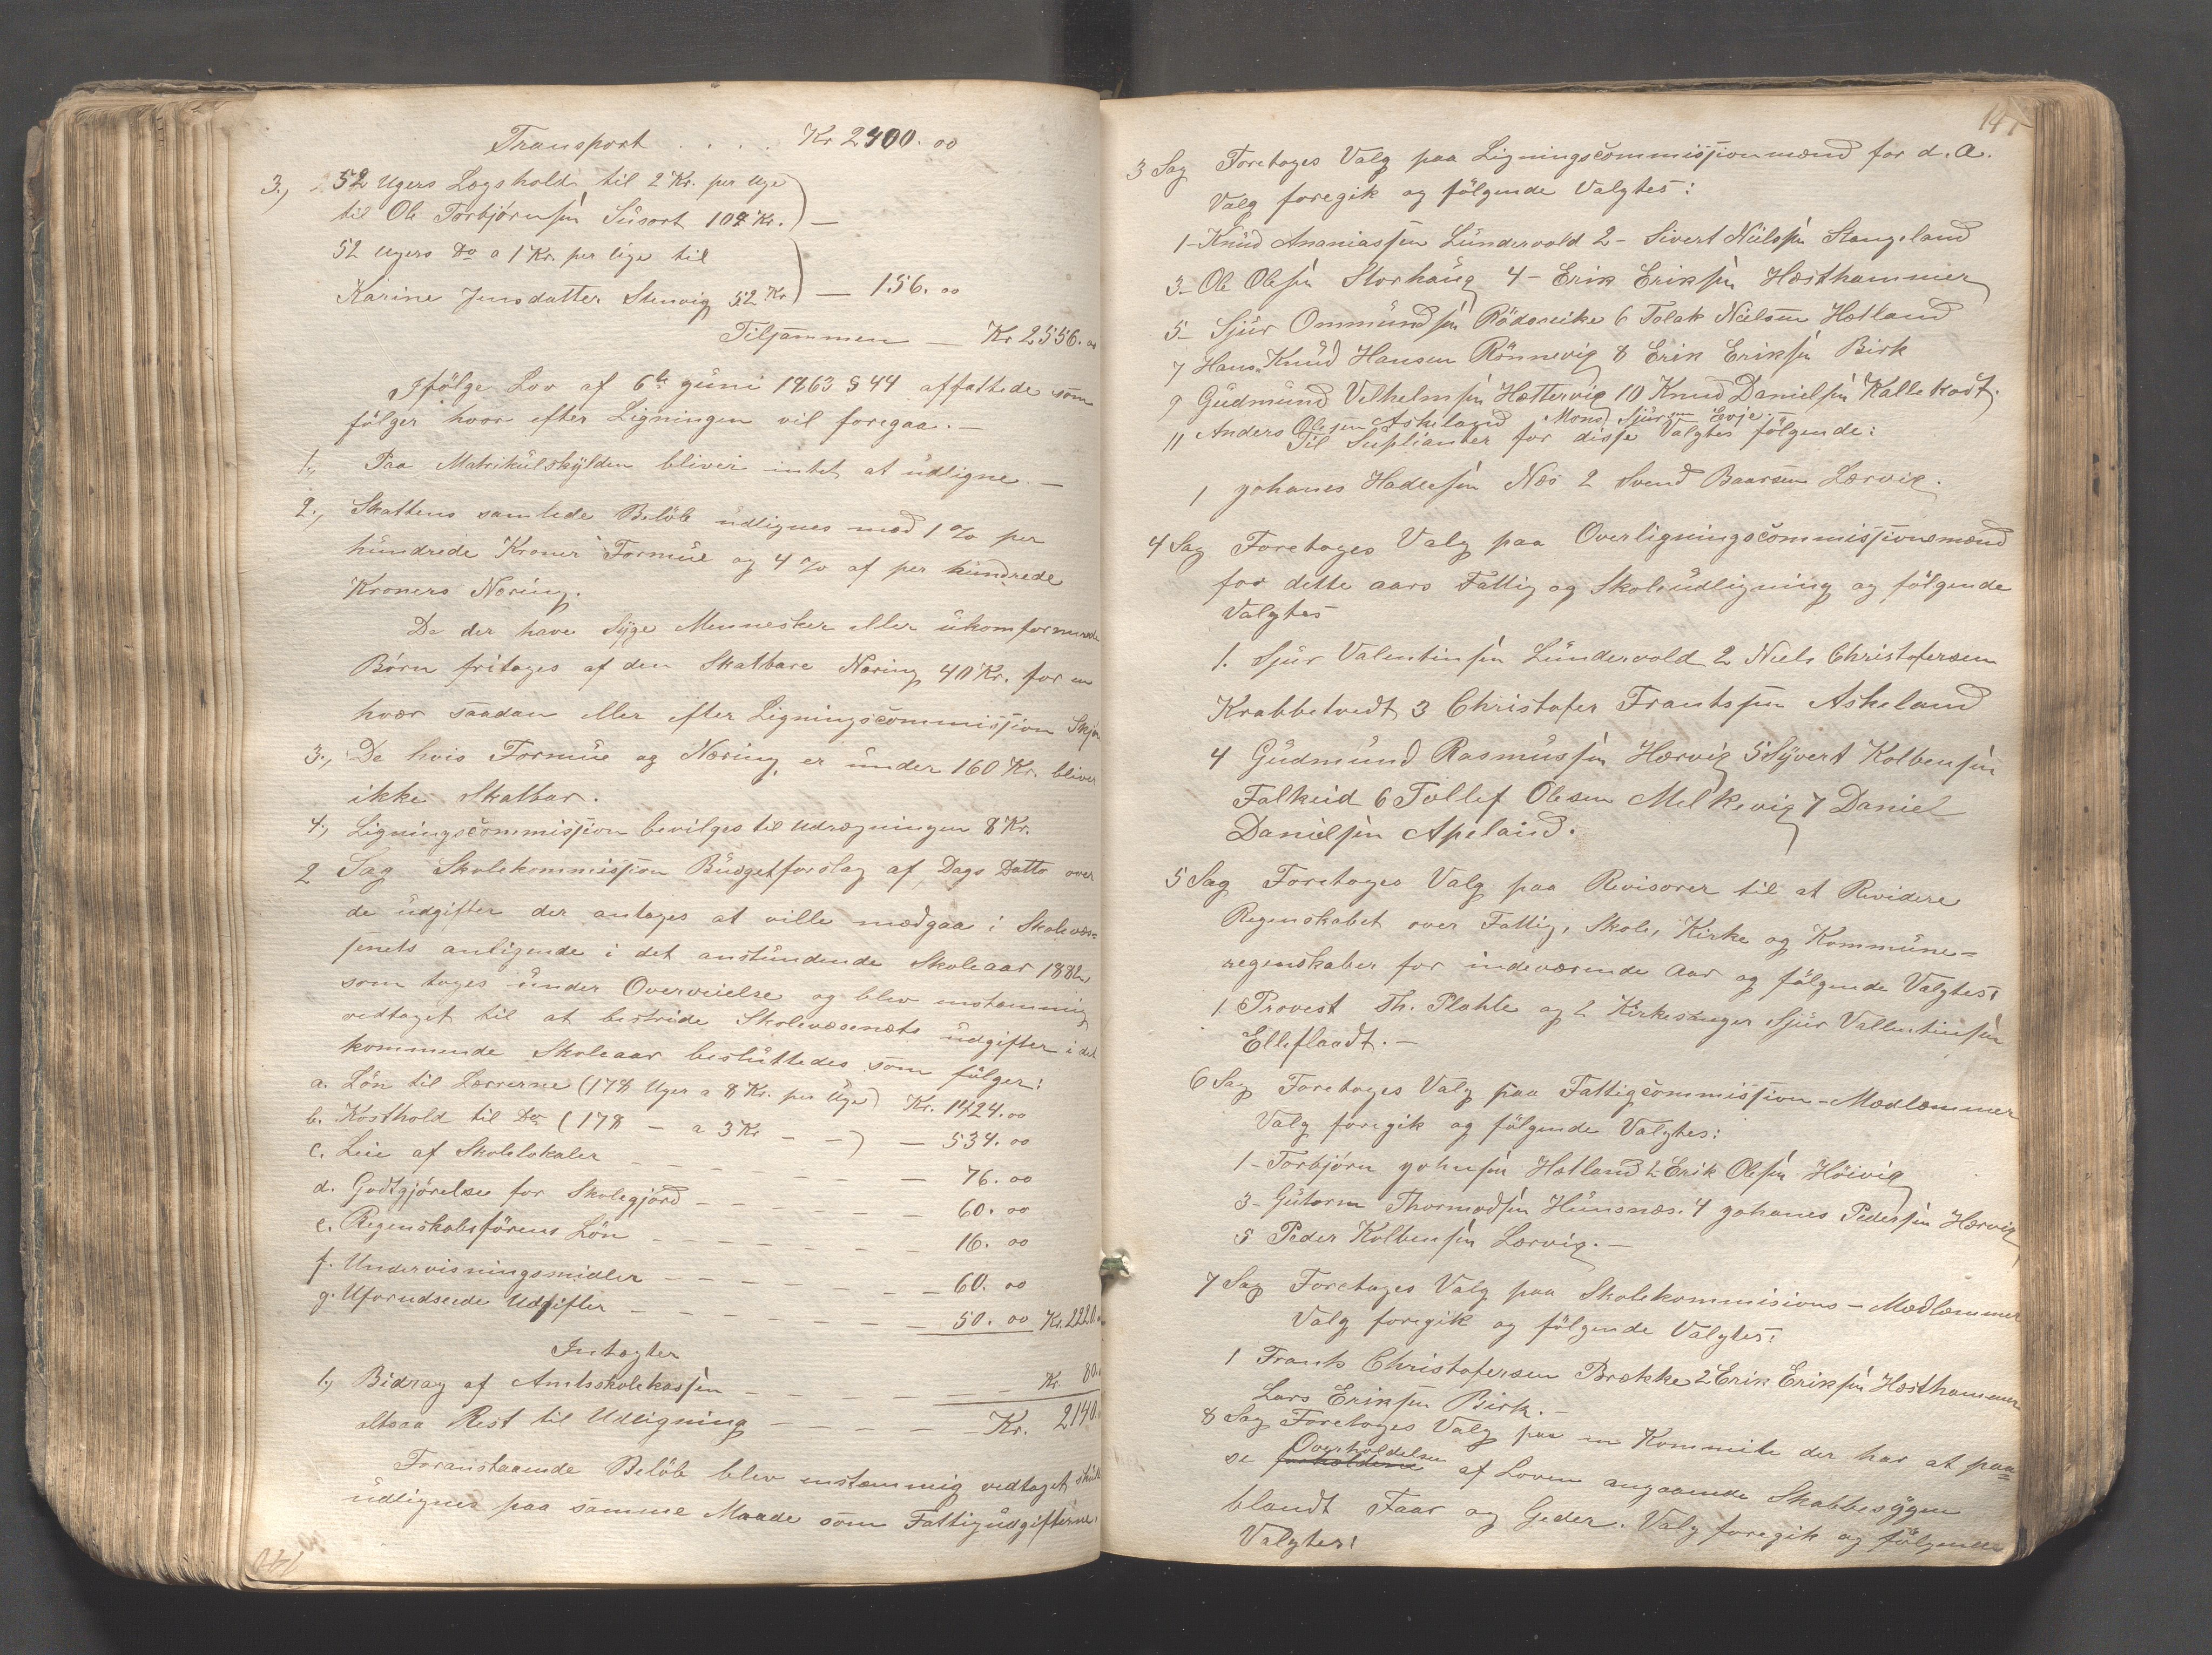 Transport . . . . Kr 2400.00
3., 52 Ugers Lægshold til 2 Kr. per Uge
til Ole Torbjørnsen Susort 104 Kr. ) —
52 Ugers Do a 1 Kr. per Uge til
Karine Jensdatter Stenvig 52 Kr ) — 156.00
Tilsammen — Kr 2556.00
Ifølge Lov af 6te Juni 1863 § 44 affattede som
følger hvor efter Ligningen vil foregaa. —
1., Paa Matrikulskylden bliver intet at udligne. —
2., Skattens samlede Beløb udlignes med 1 % per
hundrede Kroner Formue og 4 % af per hundrede
Kroners Næring.
De der have Syge Mennesker eller ukomfermerede
Børn fritages af den Skatbare Næring 40 Kr. for en
hver saadan eller efter Ligningscommissjion Skjøn
3., De hvis Formue og Næring, er under 160 Kr. bliver
ikke Skatbar.
4., Ligningscommissjion bevilges til Udregningen 8 Kr.
2 Sag Skolekommissjion Budgetforslag af Dags Datto over
de udgifter der antages at ville medgaa i Skolevæ-
senets anligende i det anstundende Skoleaar 1882,
som toges under Overveielse og blev enstemmig
vedtaget til at bestride Skolevæsenets udgifter i det
kommende Skoleaar besluttedes som følger:
a. Løn til Lærerne (178 Uger a 8 Kr. per Uge) Kr. 1424.00
b. Kosthold til Do (178 — a 3 Kr — —) — 534.00
c. Leie af Skolelokaler — — — — — — 76.00
d. Godtgjørelse for Skolegjord — — — — — 60.00
e. Regenskabsførens Løn — — — — — — 16.00
f. Undervisningsmidler — — — — — — 60.00
g. Uforudseede Udgifter — — — — — — 50.00 Kr. 2220.
Intægter
1., Bidrag af Amtsskolekassen — — — — — Kr. 80.
altsaa Rest til Udligning — — — — — Kr. 2140.
Foranstaaende Beløb blev enstemmig vedtaget skulle
udlignes paa samme Maade som Fattigudgifterne.
140
147
3 Sag Foretoges Valg paa Ligningscommissjionmænd for d. A.
Valg foregik og følgende Valgtes:
1- Knud Ananiassen Lundervold 2- Sivert Nielssen Stangeland
3- Ole Olesen Storhaug 4- Erik Eriksen Hæsthammer
5- Sjur Ommundsen Rødseike 6 Tolak Nielsen Hetland
7 Hans Knud Hansen Rønnevig 8 Erik Eriksen Birk
9 Gudmund Velhelmsen Hættervig 10 Knud Danielsen Kallekodt.
11 Anders Olesen Askeland Mons Sjursen Evje.
Til Suplianter for disse Valgtes følgende:
1 Johanes Hadlesen Næs 2 Svend Baarsen Lærvig.
4 Sag Foretoges Valg paa Overligningscommissjionsmænd
for dette aars Fattig og Skoleudligning og følgende
Valgtes
1. Sjur Valentinsen Lundervold 2 Niels Christofersen
Krabbetvedt 3 Christofer Frantssen Askeland
4 Gudmund Rasmussen Hærvig 5 Syvert Kolbensen
Falkeid 6 Tollef Olesen Melkevig 7 Daniel
Danielsen Apeland.
5 Sag Foretoges Valg paa Revisorer til at Revidere
Regenskabet over Fattig, Skole, Kirke og Kommune-
regenskaber for indeværende Aar og følgende Valgtes:
1 Provest Th. Plahte og 2 Kirkesanger Sjur Vallentinsen
Elleflaadt. —
6 Sag Foretoges Valg paa Fattigcommissjion-Medlemmer
Valg foregik og følgende Valgtes:
1- Torbjørn Johnsen Hetland 2 Erik Olesen Høivig
3- Gutorm Thormodsen Hunsnæs. 4 Johanes Pedersen Hærvig
5 Peder Kolbensen Lærvig. —
7 Sag Foretoges Valg paa Skolekommisions-Medlemmer
Valg foregik og følgende Valgtes:
1 Frants Christofersen Brekke 2 Erik Eriksen Hæsthammer
Lars Eriksen Birk. —
8 Sag Foretoges Valg paa en Kommite der har at paa-
se Overholdelsen af Loven angaaende Skabbesygen
blandt Faar og Geder. Valg foregik og følgende
Valgtes: